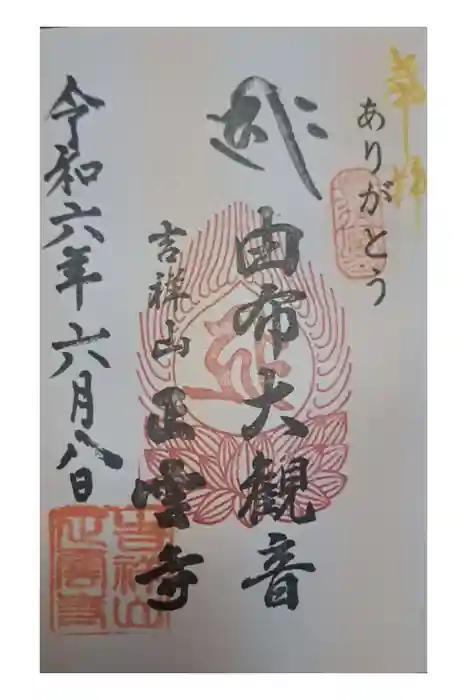 奉拝
ありがとう
由布大観音
吉祥山
正雲寺
令和六年六月八日
吉祥山
正雲寺